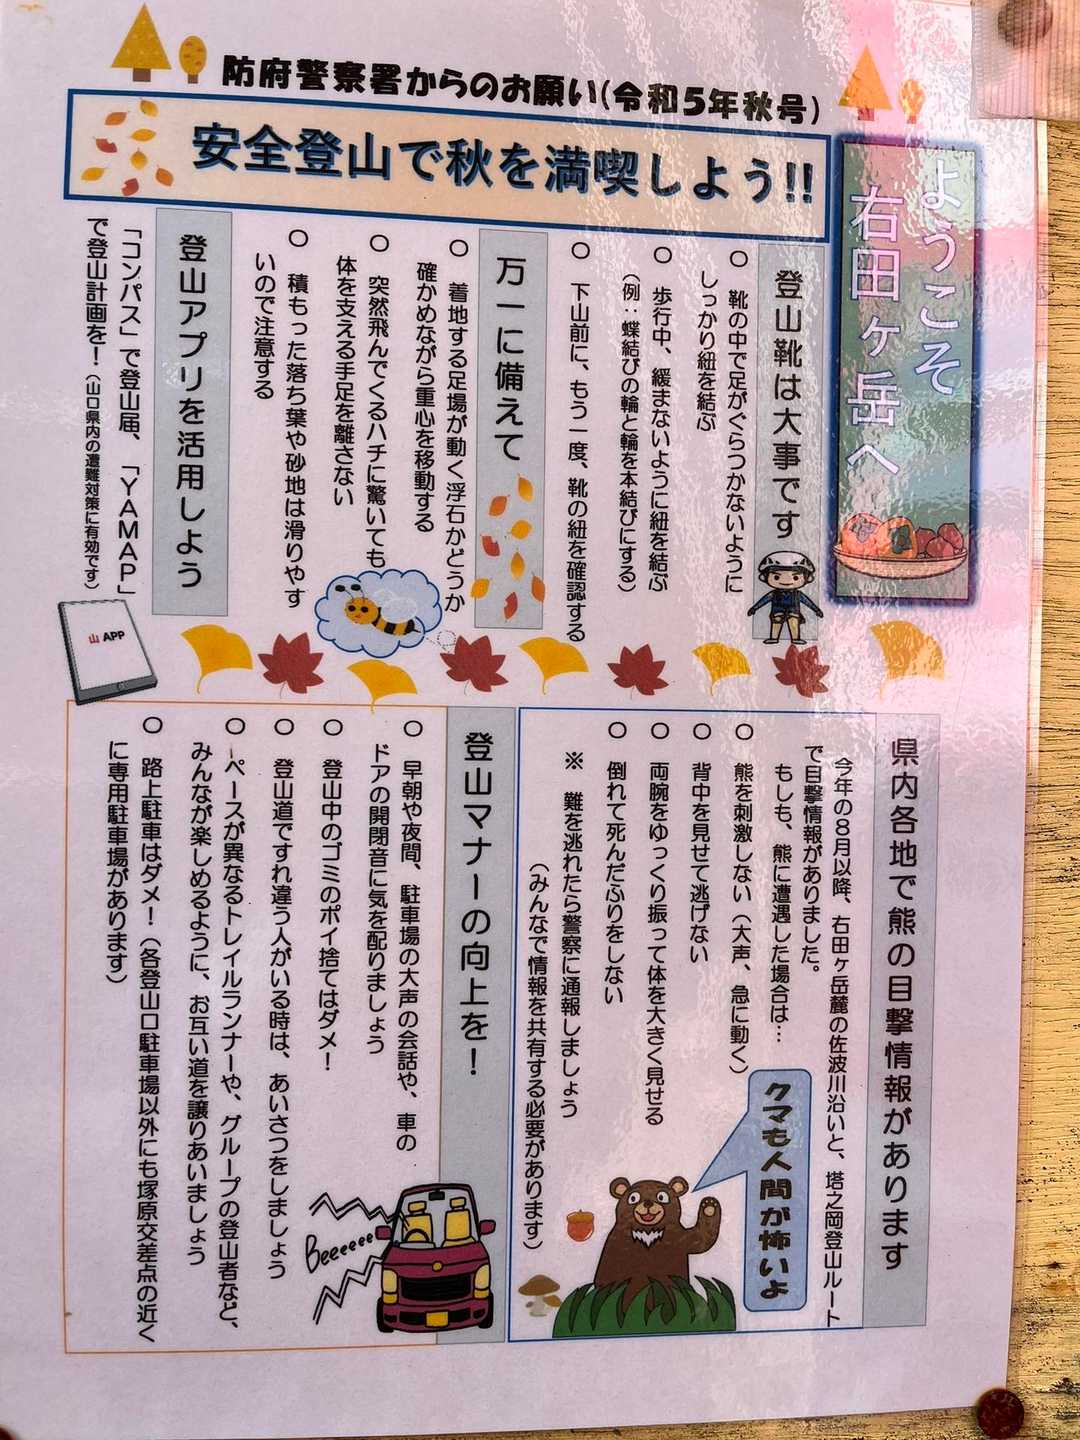 防府警察署からのお願い(令和5年秋号)
安全登山で秋を満喫しよう!!
ようこそ
右田ヶ岳へ
登山靴は大事です
○ 靴の中で足がぐらつかないように
しっかり紐を結ぶ
○ 歩行中、緩まないように紐を結ぶ
(例：蝶結びの輪と輪を本結びにする)
○ 下山前に、もう一度、靴の紐を確認する
万一に備えて
○ 着地する足場が動く浮石かどうか
確かめながら重心を移動する
○ 突然飛んでくるハチに驚いても
体を支える手足を離さない
○ 積もった落ち葉や砂地は滑りやす
いので注意する
登山アプリを活用しよう
「コンパス」で登山届、「YAMAP」
で登山計画を！(山口県内の遭難対策に有効です)
山 APP
県内各地で熊の目撃情報があります
今年の8月以降、右田ヶ岳麓の佐波川沿いと、塔之岡登山ルート
で目撃情報がありました。
もしも、熊に遭遇した場合は…
○ 熊を刺激しない（大声、急に動く）
○ 背中を見せて逃げない
○ 両腕をゆっくり振って体を大きく見せる
○ 倒れて死んだふりをしない
※ 難を逃れたら警察に通報しましょう
(みんなで情報を共有する必要があります)
クマも人間が怖いよ
登山マナーの向上を！
○ 早朝や夜間、駐車場の大声の会話や、車の
ドアの開閉音に気を配りましょう
○ 登山中のゴミのポイ捨てはダメ！
○ 登山道ですれ違う人がいる時は、あいさつをしましょう
○ ペースが異なるトレイルランナーや、グループの登山者など、
みんなが楽しめるように、お互い道を譲りあいましょう
○ 路上駐車はダメ！（各登山口駐車場以外にも塚原交差点の近く
に専用駐車場があります）
Beeeeee